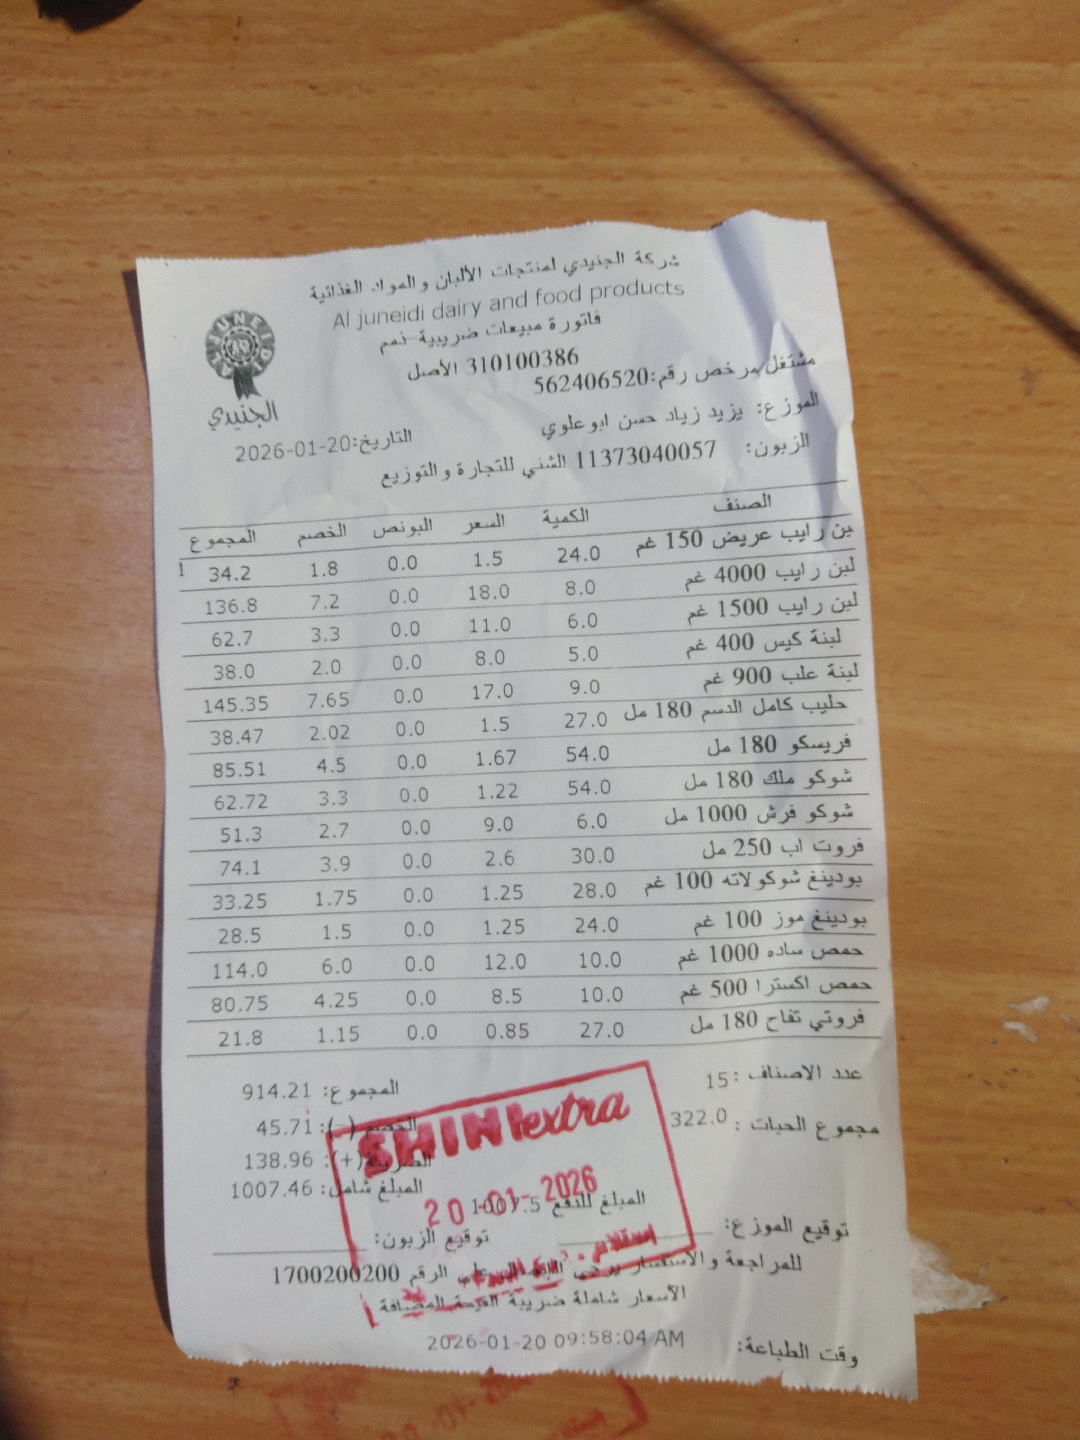 شركة الجنيدي لمنتجات الألبان والمواد الغذائية
Al juneidi dairy and food products
فاتورة مبيعات ضريبية-نمم
310100386 الأصل
مشتغل مرخص رقم:562406520
الموزع: يزيد زياد حسن ابو علوي
الزبون: 11373040057 الشني للتجارة والتوزيع
التاريخ:2026-01-20
AL JUNEIDI
الجنيدي
الصنف الكمية السعر البونص الخصم المجموع
بن رايب عريض 150 غم 24.0 1.5 0.0 1.8 34.2 1
لبن رايب 4000 غم 8.0 18.0 0.0 7.2 136.8
لبن رايب 1500 غم 6.0 11.0 0.0 3.3 62.7
لبنة كيس 400 غم 5.0 8.0 0.0 2.0 38.0
لبنة علب 900 غم 9.0 17.0 0.0 7.65 145.35
حليب كامل الدسم 180 مل 27.0 1.5 0.0 2.02 38.47
فريسكو 180 مل 54.0 1.67 0.0 4.5 85.51
شوكو ملك 180 مل 54.0 1.22 0.0 3.3 62.72
شوكو فرش 1000 مل 6.0 9.0 0.0 2.7 51.3
فروت اب 250 مل 30.0 2.6 0.0 3.9 74.1
بودينغ شوكولاته 100 غم 28.0 1.25 0.0 1.75 33.25
بودينغ موز 100 غم 24.0 1.25 0.0 1.5 28.5
حمص ساده 1000 غم 10.0 12.0 0.0 6.0 114.0
حمص اكسترا 500 غم 10.0 8.5 0.0 4.25 80.75
فروتي تفاح 180 مل 27.0 0.85 0.0 1.15 21.8
عدد الاصناف: 15
مجموع الحبات: 322.0
المجموع: 914.21
الخصم(-): 45.71
الضريبة(+): 138.96
المبلغ شامل: 1007.46
المبلغ للدفع 1007.5
SHINI extra
20-01-2026
استلام
توقيع الموزع:
توقيع الزبون:
للمراجعة والاستفسار يرجى الاتصال على الرقم 1700200200
الأسعار شاملة ضريبة القيمة المضافة
وقت الطباعة: 2026-01-20 09:58:04 AM